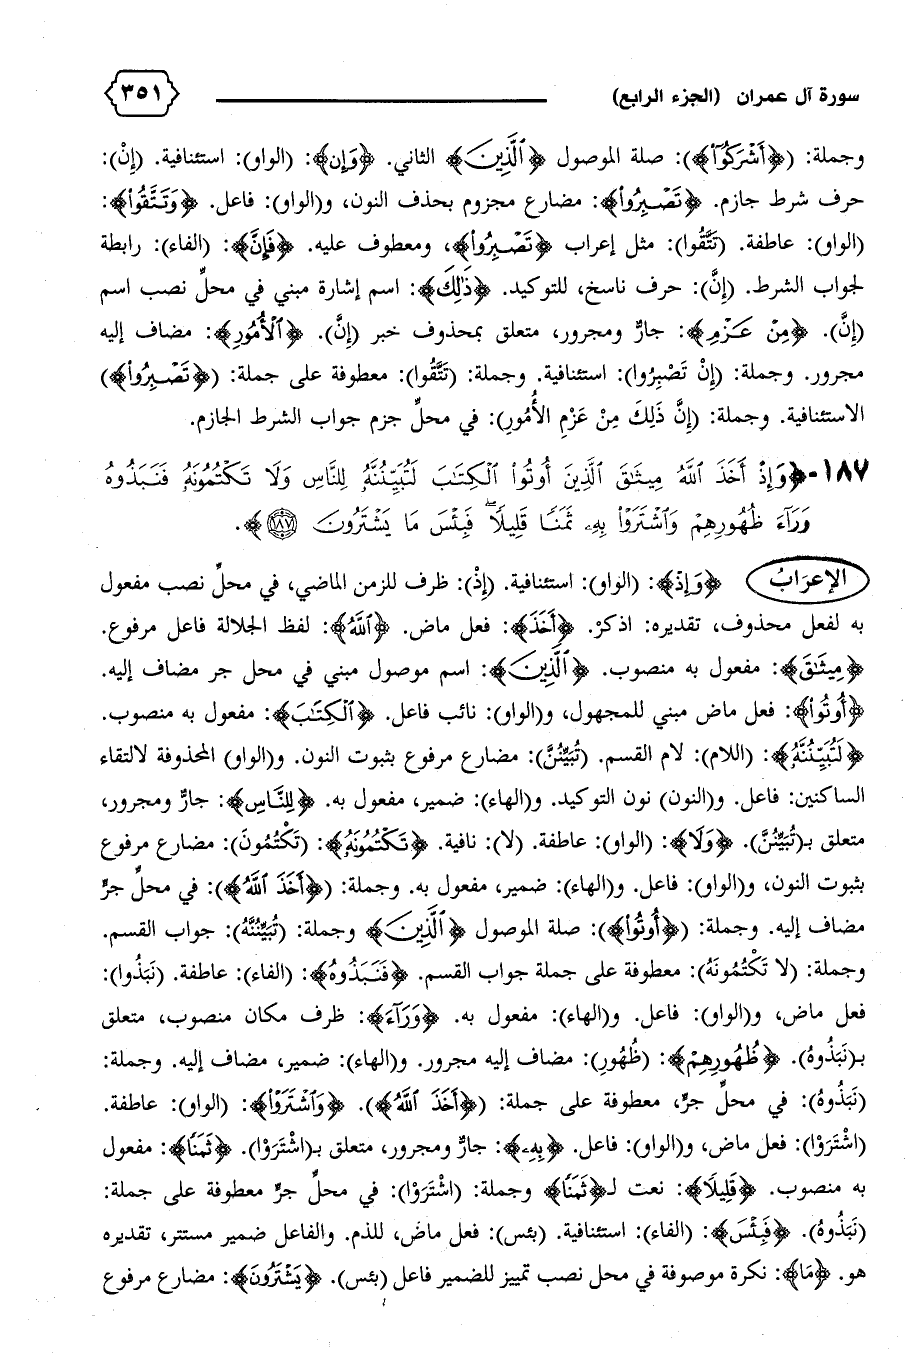 سورة آل عمران (الجزء الرابع) ٣٥١
وجملة: (﴿أَشْرَكُوٓا۟﴾): صلة الموصول ﴿ٱلَّذِينَ﴾ الثاني. ﴿وَإِن﴾: (الواو): استئنافية. (إِنْ):
حرف شرط جازم. ﴿تَصْبِرُوا۟﴾: مضارع مجزوم بحذف النون، و(الواو): فاعل. ﴿وَتَتَّقُوا۟﴾:
(الواو): عاطفة. (تَتَّقُوا): مثل إعراب ﴿تَصْبِرُوا۟﴾، ومعطوف عليه. ﴿فَإِنَّ﴾: (الفاء): رابطة
لجواب الشرط. (إِنَّ): حرف ناسخ، للتوكيد. ﴿ذَٰلِكَ﴾: اسم إشارة مبني في محلِّ نصب اسم
(إنَّ). ﴿مِنْ عَزْمِ﴾: جارٌّ ومجرور، متعلق بمحذوف خبر (إنَّ). ﴿ٱلْأُمُورِ﴾: مضاف إليه
مجرور. وجملة: (إِنْ تَصْبِرُوا): استئنافية. وجملة: (تَتَّقُوا): معطوفة على جملة: (﴿تَصْبِرُوا۟﴾)
الاستئنافية. وجملة: (إِنَّ ذَلِكَ مِنْ عَزْمِ الأُمُورِ): في محلِّ جزم جواب الشرط الجازم.
١٨٧- ﴿وَإِذْ أَخَذَ ٱللَّهُ مِيثَٰقَ ٱلَّذِينَ أُوتُوا۟ ٱلْكِتَٰبَ لَتُبَيِّنُنَّهُۥ لِلنَّاسِ وَلَا تَكْتُمُونَهُۥ فَنَبَذُوهُ
وَرَآءَ ظُهُورِهِمْ وَٱشْتَرَوْا۟ بِهِۦ ثَمَنًا قَلِيلًا ۖ فَبِئْسَ مَا يَشْتَرُونَ ١٨٧﴾.
الإعرَابُ ﴿وَإِذْ﴾: (الواو): استئنافية. (إِذْ): ظرف للزمن الماضي، في محلِّ نصب مفعول
به لفعل محذوف، تقديره: اذكرْ. ﴿أَخَذَ﴾: فعل ماض. ﴿ٱللَّهُ﴾: لفظ الجلالة فاعل مرفوع.
﴿مِيثَٰقَ﴾: مفعول به منصوب. ﴿ٱلَّذِينَ﴾: اسم موصول مبني في محل جر مضاف إليه.
﴿أُوتُوا۟﴾: فعل ماض مبني للمجهول، و(الواو): نائب فاعل. ﴿ٱلْكِتَٰبَ﴾: مفعول به منصوب.
﴿لَتُبَيِّنُنَّهُۥ﴾: (اللام): لام القسم. (تُبَيِّنُنَّ): مضارع مرفوع بثبوت النون. و(الواو) المحذوفة لالتقاء
الساكنين: فاعل. و(النون) نون التوكيد. و(الهاء): ضمير، مفعول به. ﴿لِلنَّاسِ﴾: جارٌّ ومجرور،
متعلق بـ(تُبَيِّنُنَّ). ﴿وَلَا﴾: (الواو): عاطفة. (لا): نافية. ﴿تَكْتُمُونَهُۥ﴾: (تَكْتُمُونَ): مضارع مرفوع
بثبوت النون، و(الواو): فاعل. و(الهاء): ضمير، مفعول به. وجملة: (﴿أَخَذَ ٱللَّهُ﴾): في محلِّ جرٍّ
مضاف إليه. وجملة: (﴿أُوتُوا۟﴾): صلة الموصول ﴿ٱلَّذِينَ﴾ وجملة: (تُبَيِّنُنَّهُ): جواب القسم.
وجملة: (لا تَكْتُمُونَهُ): معطوفة على جملة جواب القسم. ﴿فَنَبَذُوهُ﴾: (الفاء): عاطفة. (نَبَذُوا):
فعل ماض، و(الواو): فاعل. و(الهاء): مفعول به. ﴿وَرَآءَ﴾: ظرف مكان منصوب، متعلق
بـ(نَبَذُوهُ). ﴿ظُهُورِهِمْ﴾: (ظُهُورِ): مضاف إليه مجرور. و(الهاء): ضمير، مضاف إليه. وجملة:
(نَبَذُوهُ): في محلِّ جرٍّ، معطوفة على جملة: (﴿أَخَذَ ٱللَّهُ﴾). ﴿وَٱشْتَرَوْا۟﴾: (الواو): عاطفة.
(اشْتَرَوْا): فعل ماض، و(الواو): فاعل. ﴿بِهِۦ﴾: جارٌّ ومجرور، متعلق بـ(اشْتَرَوْا). ﴿ثَمَنًا﴾: مفعول
به منصوب. ﴿قَلِيلًا﴾: نعت لـ﴿ثَمَنًا﴾ وجملة: (اشْتَرَوْا): في محلِّ جرٍّ معطوفة على جملة:
(نَبَذُوهُ). ﴿فَبِئْسَ﴾: (الفاء): استئنافية. (بئس): فعل ماض، للذم. والفاعل ضمير مستتر، تقديره
هو. ﴿مَا﴾: نكرة موصوفة في محل نصب تمييز للضمير فاعل (بئس). ﴿يَشْتَرُونَ﴾: مضارع مرفوع